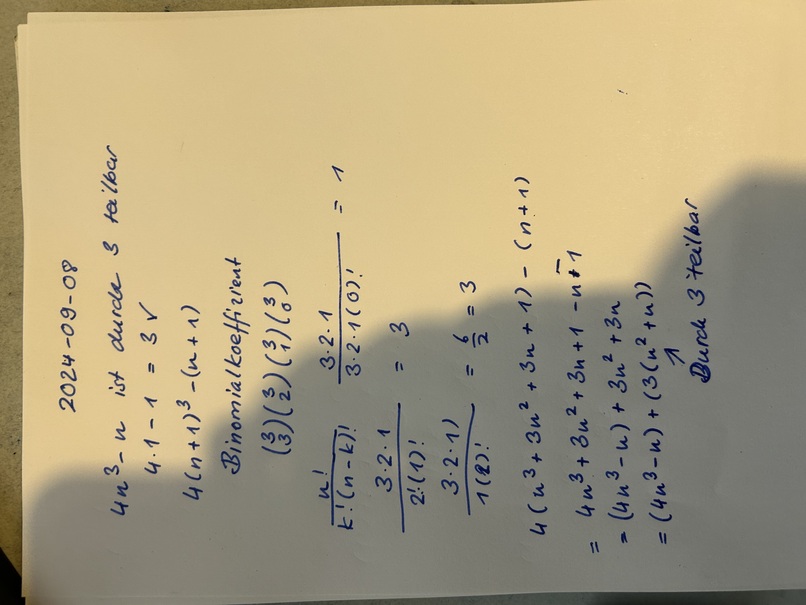 2024-09-08
4n³ - n ist durch 3 teilbar
4 · 1 - 1 = 3 ✓
4(n+1)³ - (n+1)
Binomialkoeffizient
(3 3) (3 2) (3 1) (3 0)
n! / k!(n-k)! 3·2·1 / 3·2·1(0)! = 1
3·2·1 / 2!(1)! = 3
3·2·1) / 1(2)! = 6/2 = 3
4(n³ + 3n² + 3n + 1) - (n+1)
= 4n³ + 3n² + 3n + 1 - n - 1
= (4n³ - n) + 3n² + 3n
= (4n³ - n) + (3(n² + n))
↗
Durch 3 teilbar